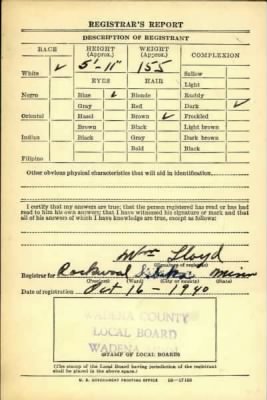 REGISTRAR'S REPORT
DESCRIPTION OF REGISTRANT
RACE HEIGHT (Approx.) WEIGHT (Approx.) COMPLEXION
White ✓ 5'-11" 155 Sallow
EYES HAIR Light
Negro Blue ✓ Blonde Ruddy
Gray Red Dark ✓
Oriental Hazel Brown ✓ Freckled
Brown Black Light brown
Indian Black Gray Dark brown
Bald Black
Filipino
Other obvious physical characteristics that will aid in identification
I certify that my answers are true; that the person registered has read or has had
read to him his own answers; that I have witnessed his signature or mark and that
all of his answers of which I have knowledge are true, except as follows:
Wm Lloyd
(Signature of registrar)
Registrar for Minn
(Precinct) (Ward) (City or county) (State)
Date of registration Oct 16 - 1940
WADENA COUNTY
LOCAL BOARD
WADENA
STAMP OF LOCAL BOARD
(The stamp of the Local Board having jurisdiction of the registrant
shall be placed in the above space.)
U. S. GOVERNMENT PRINTING OFFICE 16-17105